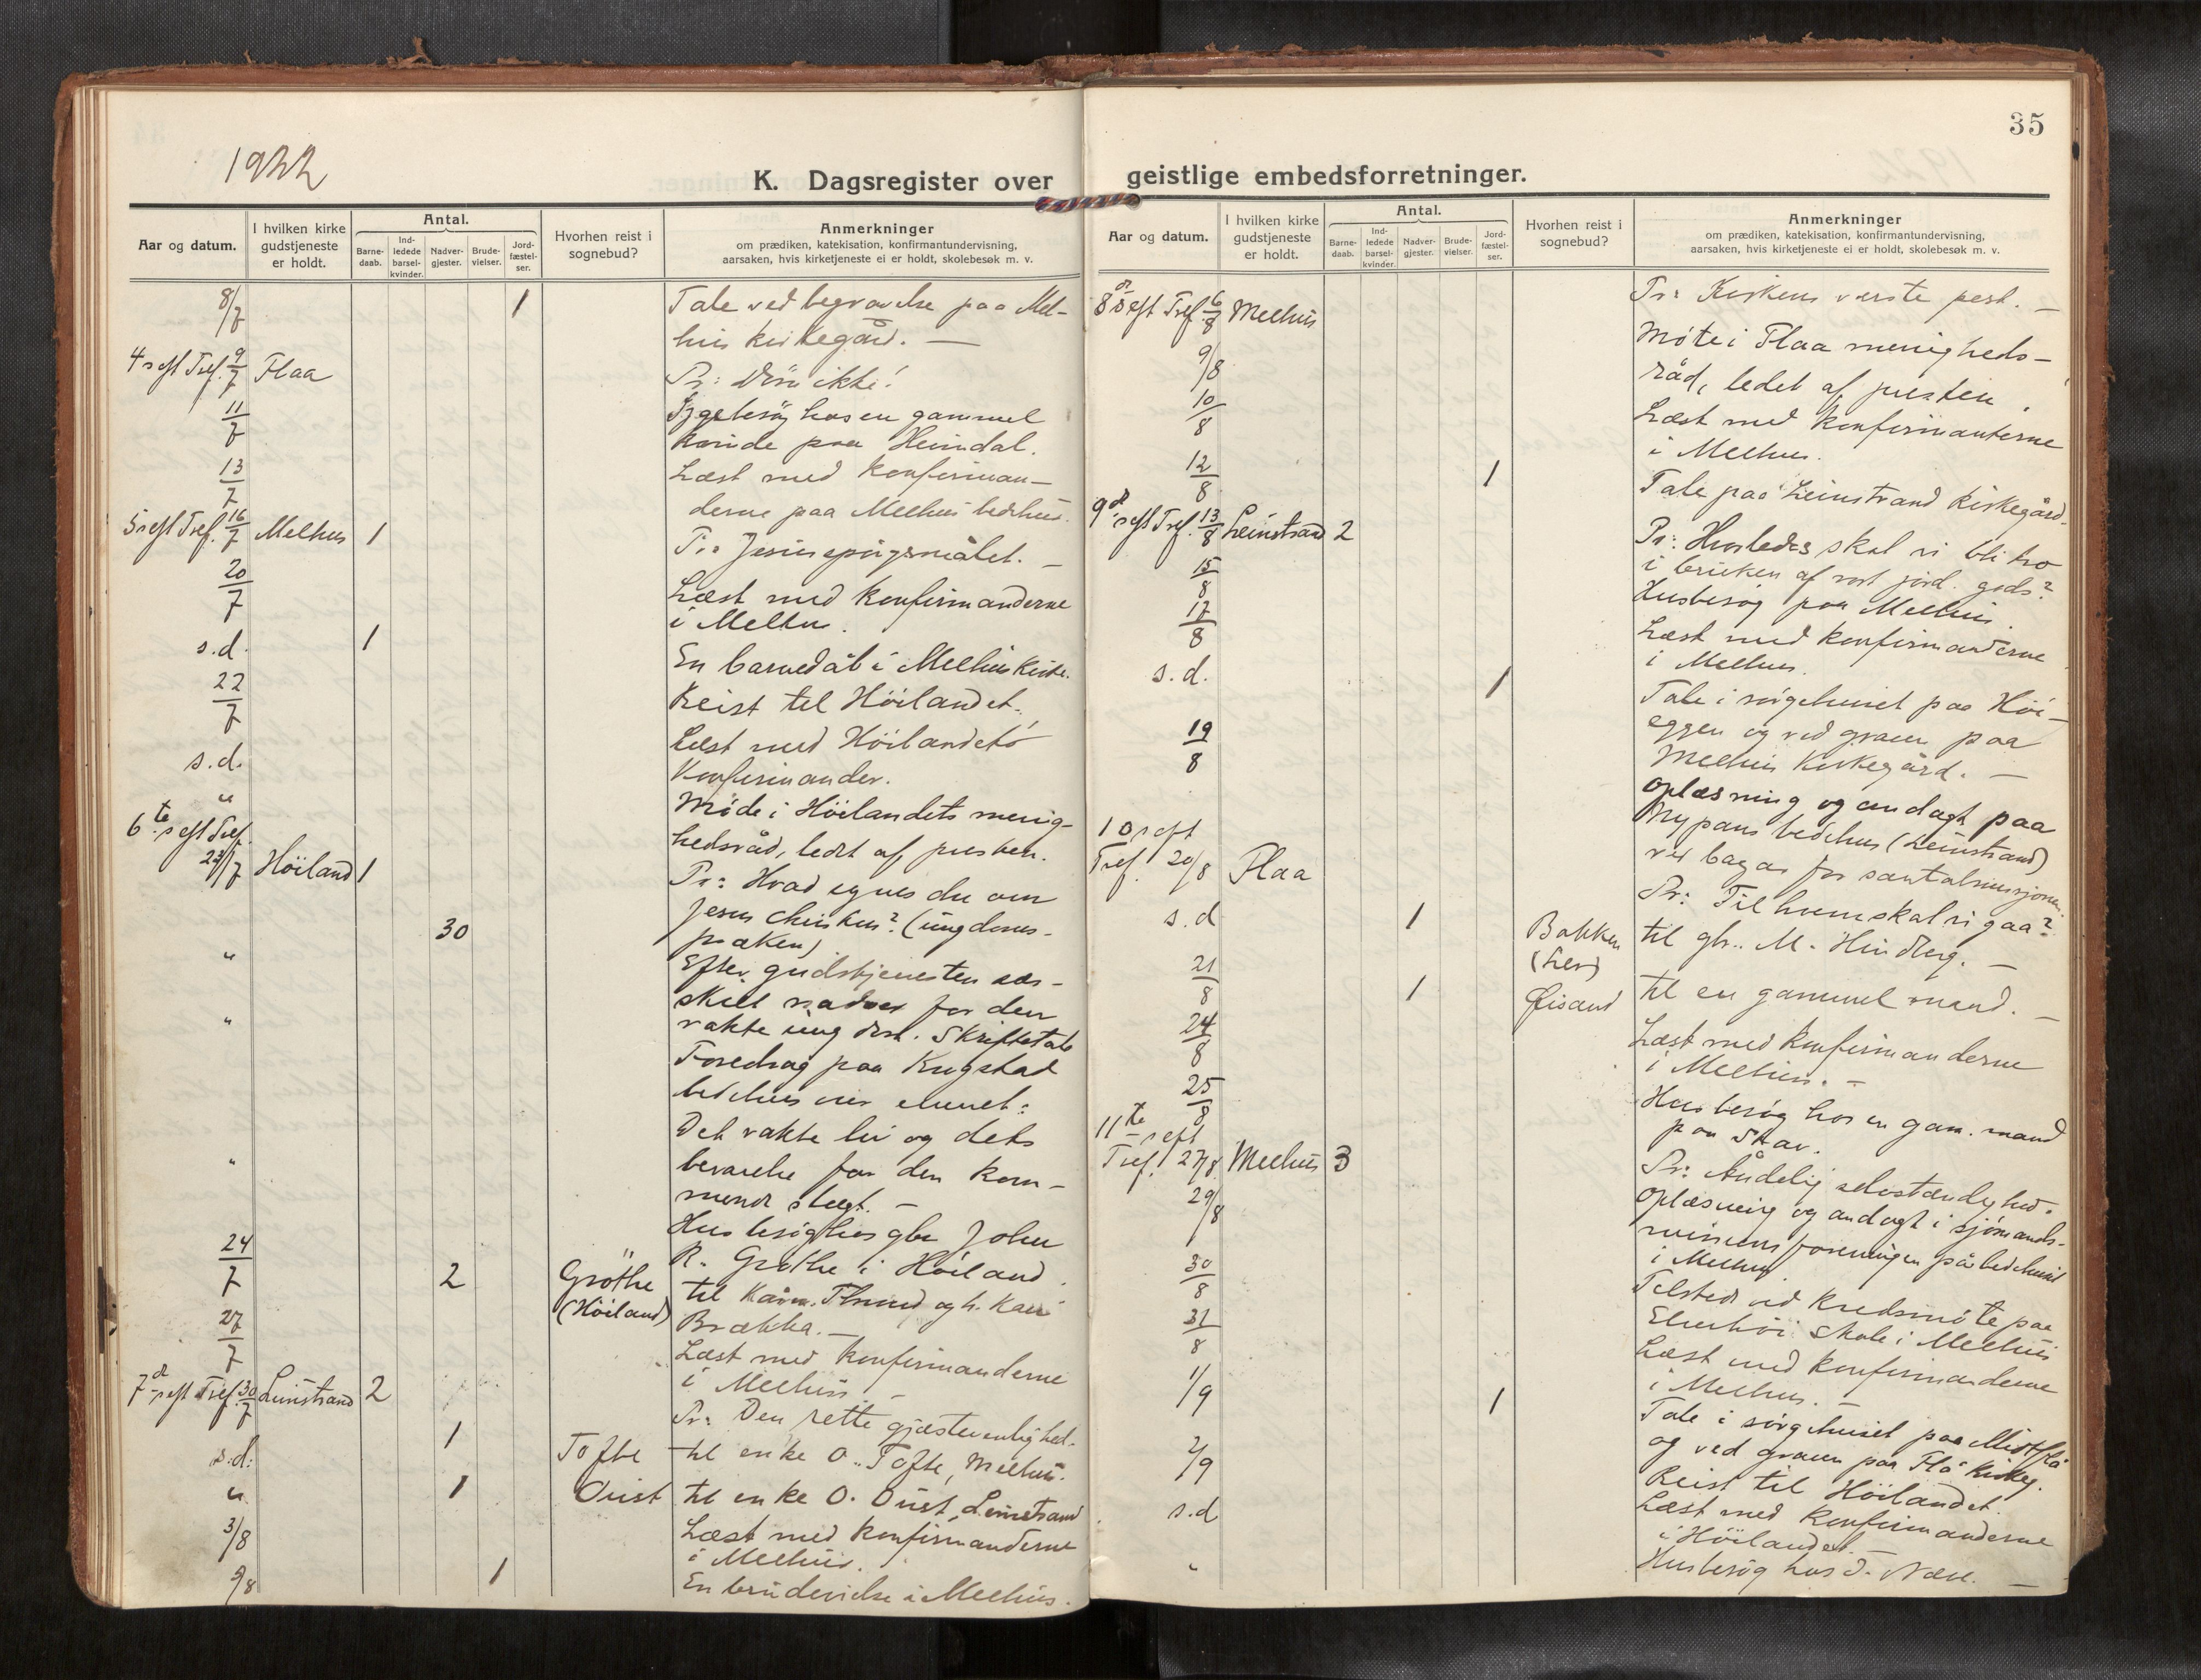 1922
K. Dagsregister over
Aar og datum.
I hvilken kirke gudstjeneste er holdt.
Antal.
Barne-daab.
Ind-ledede barsel-kvinder.
Nadver-gjester.
Brude-vielser.
Jord-fæstel-ser.
Hvorhen reist i sognebud?
Anmerkninger
om prædiken, katekisation, konfirmantundervisning,
aarsaken, hvis kirketjeneste ei er holdt, skolebesøk m. v.
8/7 1 Tale ved begravelse paa Mel-
hus kirkegård. —
4 s eft Tref. 9/7 Flaa Pr: Døm ikke!
11/7 Sygebesög hos en gammel
kvinde paa Heimdal.
13/7 Læst med Konfirman-
derne paa Melhus bedehus.
5 s eft Tref. 16/7 Melhus 1 Pr: Jesusspörgsmålet. —
20/7 Læst med Konfirmanderne
i Melhus.
s.d. 1 En barnedåb i Melhus Kirke.
22/7 Reist til Höilandet.
s.d. Læst med Höilandets
Konfirmander.
" Möde i Höilandets menig-
hedsråd, ledet af presten.
6te s eft Tref.
23/7 Höiland 1 Pr: Hvad synes du om
Jesus Christus? (ungdoms-
præken)
" 30 Efter gudstjenesten sær-
skilt nadver for den
vakte ungdom. Skriftetale
" Foredrag paa Kugstad
bedehus over emnet:
Det vakte liv og dets
bevarelse for den kom-
mende slægt. —
" Husbesög hos gbr John
R. Gröthe i Höiland.
24/7 2 Gröthe
(Höiland) til og h. Kari
Brækka. —
27/7 Læst med Konfirmanderne
i Melhus —
7d s eft Tref. 30/7 Leinstrand 2 Pr: Den rette gjæstevenlighed.
s.d: 1 Tofte til enke O. Tofte, Melhus.
" 1 Oust til enke O. Oust, Leinstrand
3/8 Læst med Konfirmanderne
i Melhus.
5/8 1 En brudevielse i Melhus.
35
geistlige embedsforretninger.
Aar og datum.
I hvilken kirke gudstjeneste er holdt.
Antal.
Barne-daab.
Ind-ledede barsel-kvinder.
Nadver-gjester.
Brude-vielser.
Jord-fæstel-ser.
Hvorhen reist i sognebud?
Anmerkninger
om prædiken, katekisation, konfirmantundervisning,
aarsaken, hvis kirketjeneste ei er holdt, skolebesøk m. v.
8d s eft Tref. 6/8 Melhus Pr: Kirkens værste pest. —
9/8 Møte i Flaa menigheds-
råd, ledet af presten.
10/8 Læst med Konfirmanterne
i Melhus.
12/8 1 Tale paa Leinstrand Kirkegård.
9d s eft Tref. 13/8 Leinstrand 2 Pr: Hvorledes skal vi bli tro
i bruken af vort jord. gods?
15/8 Husbesög paa Melhus.
17/8 Læst med Konfirmanderne
i Melhus.
s.d. 1 Tale i sörgehuset paa Höi-
eggen og ved graven paa
Melhus Kirkegård. —
19/8 Oplæsning og andagt paa
Nypans bedehus (Leinstrand)
ved bazar for santalmisjonen.
10 s eft
Tref. 20/8 Flaa Pr: Til hvem skal vi gaa?
s.d 1 Bakken
(Ler) til gbr. M. Hindberg. —
21/8 1 Øisand til en gammel mand. —
24/8 Læst med Konfirmanderne
i Melhus. —
25/8 Husbesög hos en gam. mand
paa Skar.
11te s eft
Tref. 27/8 Melhus 3 Pr: Åndelig selvstændighed.
29/8 Oplæsning og andagt i sjömands-
misjonsforeningen på bedehuset
i Melhus.
30/8 Tilstede ved Kredsmöte paa
skole i Melhus
31/8 Læst med Konfirmanderne
i Melhus. —
1/9 1 Tale i sörgehuset paa
og ved graven paa Flå Kirkeg.
2/9 Reist til Höilandet.
s.d Læst med Konfirmanderne
i Höilandet. —
" Husbesög hos —